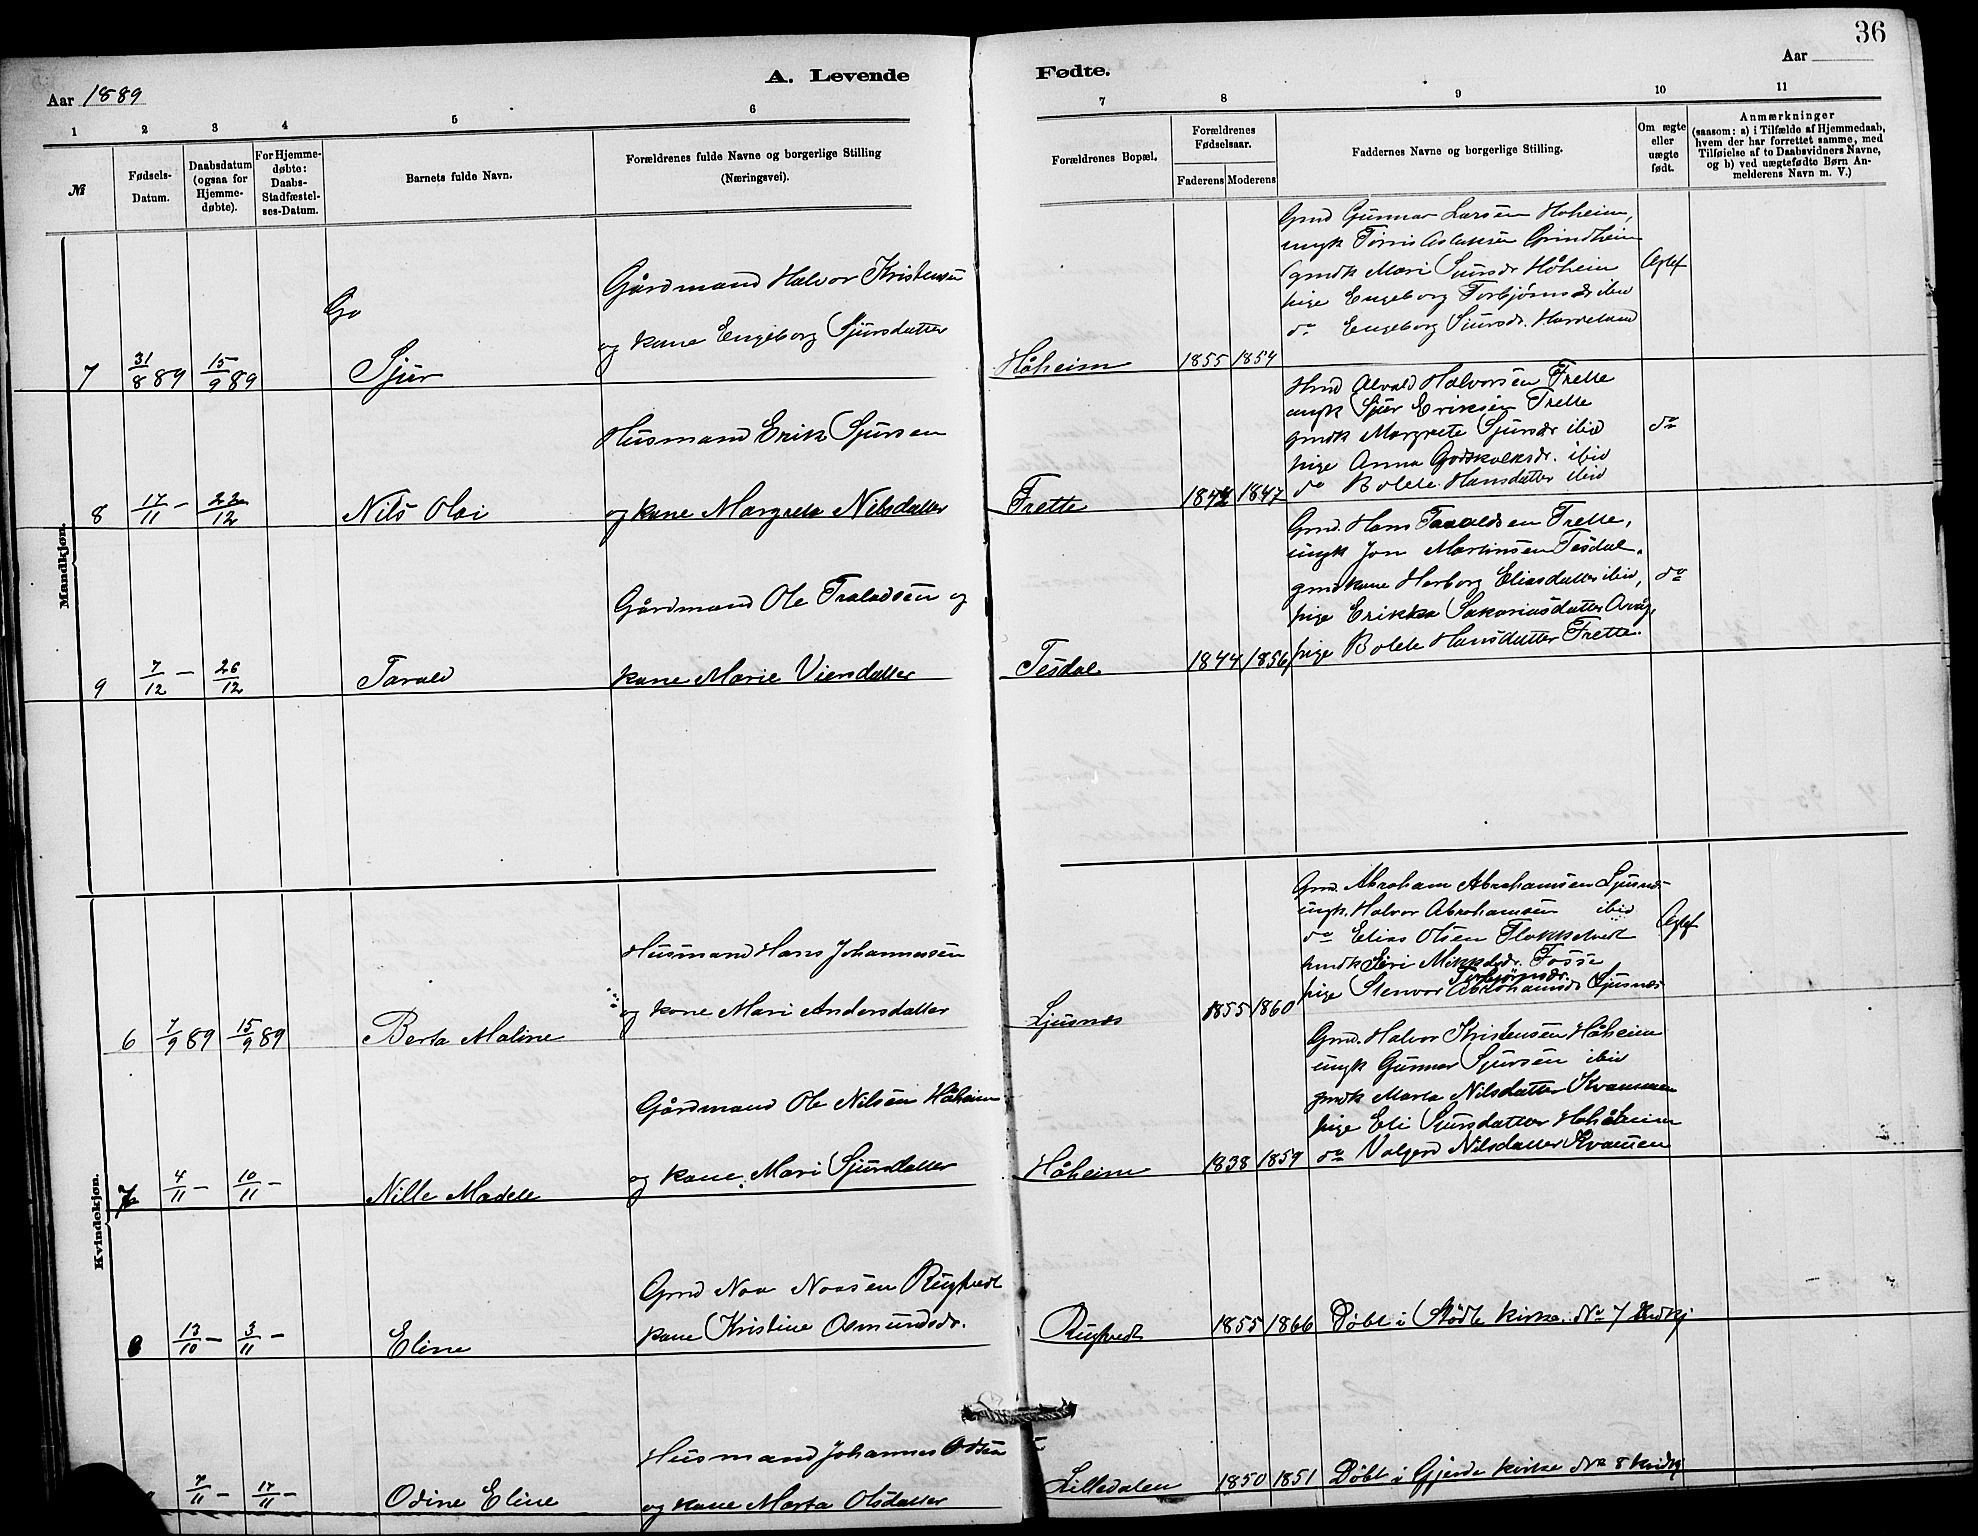 36
A. Levende
Fødte.
Aar 1889
Aar
1 2 3 4 5 6 7 8 9 10 11
№
Fødsels-
Datum.
Daabsdatum
(ogsaa for
Hjemme-
døbte).
For Hjemme-
døbte:
Daabs-
Stadfæstel-
ses-Datum.
Barnets fulde Navn.
Forældrenes fulde Navne og borgerlige Stilling
(Næringsvei).
Forældrenes Bopæl.
Forældrenes
Fødselsaar.
Faderens Moderens
Faddernes Navne og borgerlige Stilling.
Om ægte
eller
uægte
født.
Anmærkninger
(saasom: a) i Tilfælde af Hjemmedaab,
hvem der har forrettet samme, med
Tilføielse af to Daabsvidners Navne,
og b) ved uægtefødte Børn An-
melderens Navn m. V.)
Mandkjøn.
Go
7 31/8 89 15/9 89 Sjur
Gårdmand Halvor Kristensen
og kone Engeborg Sjursdatter
Håheim 1855 1854
Gmd Gunnar Larsen Hoheim,
ungk Tørris Aslaksen Grindheim
gmdk Mari Sjursdr Håheim
pige Engeborg Torbjørnsdr ibid
do Engeborg Sjursdr.
Ægtef
8 17/11 - 22/12 Nils Olai
Husmand Erik Sjursen
og kone Margreta Nilsdatter
Frette 1847
Hmd Alvald Halvorsen Frette
ungk Sjur Eriksen Frette
gmdk Margrete Sjursdr ibid
pige Anna Godskalksdr. ibid
do Bolele Hansdatter ibid
do
9 7/12 - 26/12 Tarald
Gårdmand Ole Traladsen og
kone Marie Viersdatter
Tesdal 1844 1856
Gmd. Hans Taraldsen Frette,
ungk Jon Martinsen Tesdal.
gmdkone Herborg Eliasdatter ibid,
pige Erikka Sakariasdatter
pige Bolele Hansdatter Frette.
do
Kvindekjøn.
6 7/9 89 15/9 89 Berta Maline
Husmand Hans Johannessen
og kone Mari Andersdatter
Ljusnes 1855 1860
Gmd. Abraham Abrahamsen Ljusnes
ungk. Halvor Abrahamsen ibid
do Elias Olsen Flokketvedt
hmdk Seri Mikkelsdr. Fosse
Torbjørnsdr.
pige Stenvor Abrahamsdr Ljusnes
Ægtef
7 4/11 - 10/11 - Nille Madele
Gårdmand Ole Nilsen Håheim
og kone Mari Sjursdatter
Håheim 1838 1859
Gmd. Halvor Kristensen Håheim
ungk Gunnar Sjursen ibid
gmdk Marta Nilsdatter Kvammen
pige Eli Sjursdatter Hohåheim
do Valgerd Nilsdatter Kvamen
13/10 - 3/11 - Eline
Gmd Noa Noasen Rugtvedt
kone Kristine Osmundsdr.
Rugtvedt 1855 1866 Døbt i Stødle kirke. No 7
7/11 - 17/11 - Odine Eline
Husmand Johannes
og kone Marta Olsdatter
Lilledalen 1850 1851 Døbt i Gjerde kirke No 8 Kvidkj